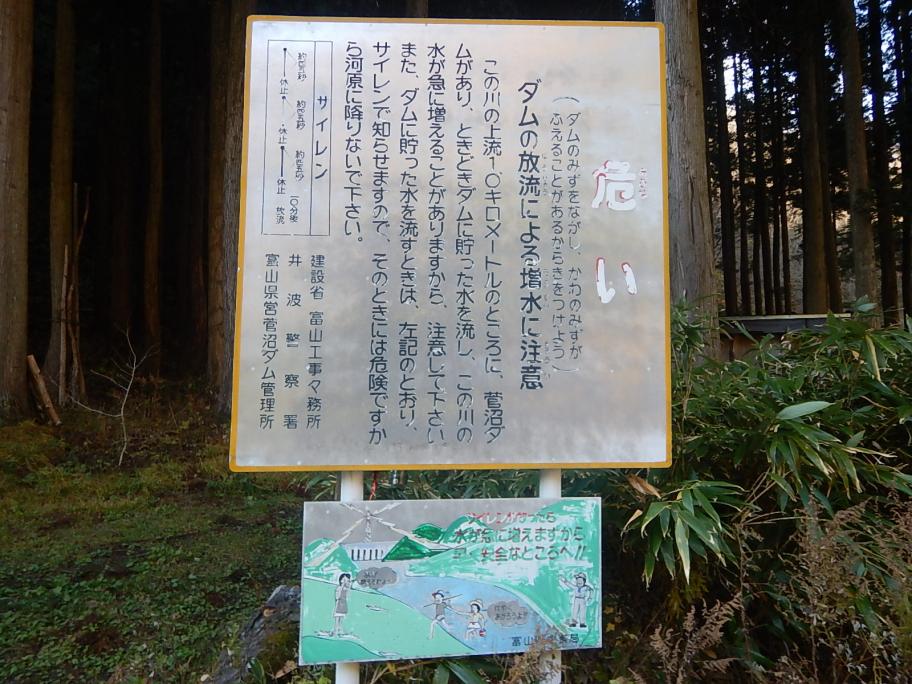 危い
（ダムのみずをながし、かわのみずが
ふえることがあるからきをつけよう）
ダムの放流による増水に注意
この川の上流1.0キロメートルのところに、菅沼ダ
ムがあり、ときどきダムに貯った水を流し、この川の
水が急に増えることがありますから、注意して下さい。
また、ダムに貯った水を流すときは、左記のとおり、
サイレンで知らせますので、そのときには危険ですか
ら河原に降りないで下さい。
サイレン
約四五秒 約四五秒 約四五秒
休止 休止 休止 一〇分後 放流
建設省 富山工事々務所
井波警察署
富山県営菅沼ダム管理所
サイレンがなったら
水が急に増えますから
安全なところへ!!
はやく
あがろうよ
富山